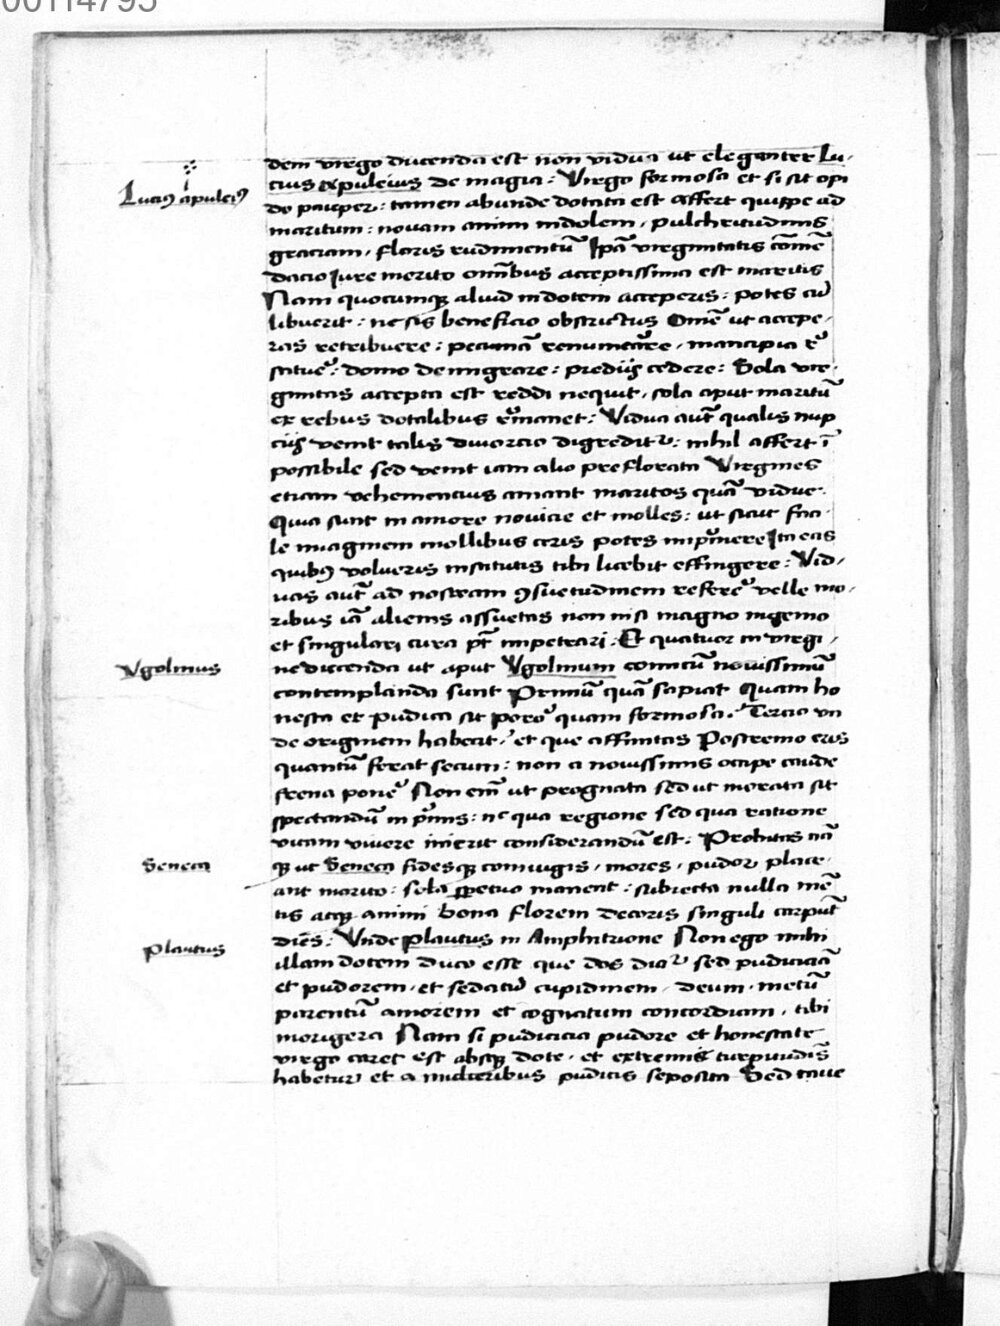 00114795
dem virgo ducenda est non vidua ut eleganter Lu-
cius Apuleius de magia: Virgo formosa et si sit opi
Lucius apuleius
do pauper: tamen abunde dotata est Affert quippe ad
maritum: novam animi indolem, pulchritudinis
graciam, floris rudimentū Ipā virginitatis cōmē
dacio Iure merito omībus acceptissima est maritis
Nam quocumqȝ aliud in dotem acceperis: potes cū
libuerit: ne sis beneficio obstrictus Omē ut accepe-
ras retribuere: pecuniā renumerare, mancipia re
stitue͛: domo demigrare: prediis cedere: Sola vir-
ginitas accepta est reddi nequit, sola aput maritū
ex rebus dotalibus remanet: Vidua aut̄ qualis nup
ciis venit talis divorcio digredit͛: nihil affert ī
possibile sed venit iam alio preflorata Virgines
etiam vehemencius amant maritos quā vidue:
Quia sunt in amore novicie et molles: ut sicut faci-
le imaginem mollibus ceris potes imprimere Ita eas
quibꝰ volueris institutis tibi licebit effingere: Vid-
uas aut̄ ad nostram ꝯsuetudinem refere͛ velle mo-
ribus iā alienis assuetas non nisi magno ingenio
et singulari cura pt̄ impetrari: Et quatuor in virgi-
Vgolinus
ne ducenda ut aput Vgolinum comicū novissimū
contemplanda sunt Primū quā sapiat Quam ho
nesta et pudica sit poro͛ quam formosa. Tercio vn
de originem habeat, et que affinitas Postremo eros
quantū ferat secum: non a novissimis occipe caude
frena pone͛ Non em̄ ut prognata sed ut morata sit
spectandū in pͥmis: nͨ qua regione sed qua ratione
vitam vivere inierit considerandū est: Probitas nā
Seneca
qȝ ut Seneca fidesqȝ coniugis, mores, pudor place-
ant marito: sola ꝑpetuo manent: subiecta nulla mē
tis atqȝ animi bona Florem decoris singuli carpūt
Plautus
diēs: Vnde Plautus in Amphitrione Non ego mihi
illam dotem duco esse que dos dicit͛ sed pudiciciā
et pudorem, et sedatū cupidinem, deum, metū
parentū amorem et cognatum concordiam, tibi
morigera Nam si pudicicia pudore et honestate
virgo caret est absqȝ dote, et extremis turpitudīs
habetur et a mulieribus pudicis seposita Sed cave